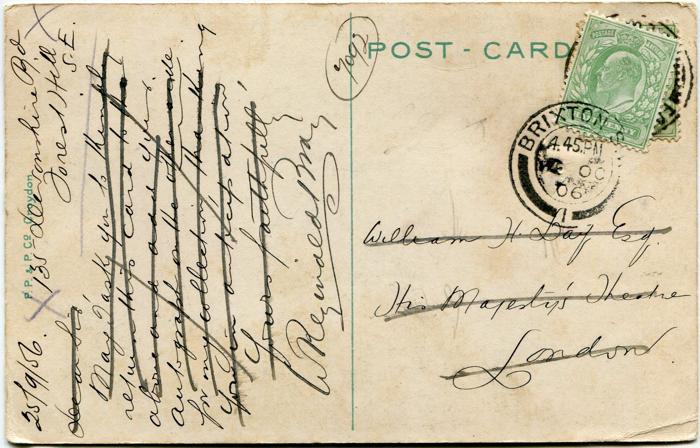 POST - CARD
7092
135 Devonshire Rd
Forest Hill
S.E.
25/9/06.
Dear Sir
May I ask you to kindly
return this card to
above and your
autograph on the other side
for my collecting thanking
you in anticipation
Yours faithfully
W Reginald Bray
P.P. & P Co Croydon
BRIXTON S
4.45.PM
OC
06
William H. Day Esq.
His Majesty's Theatre
London